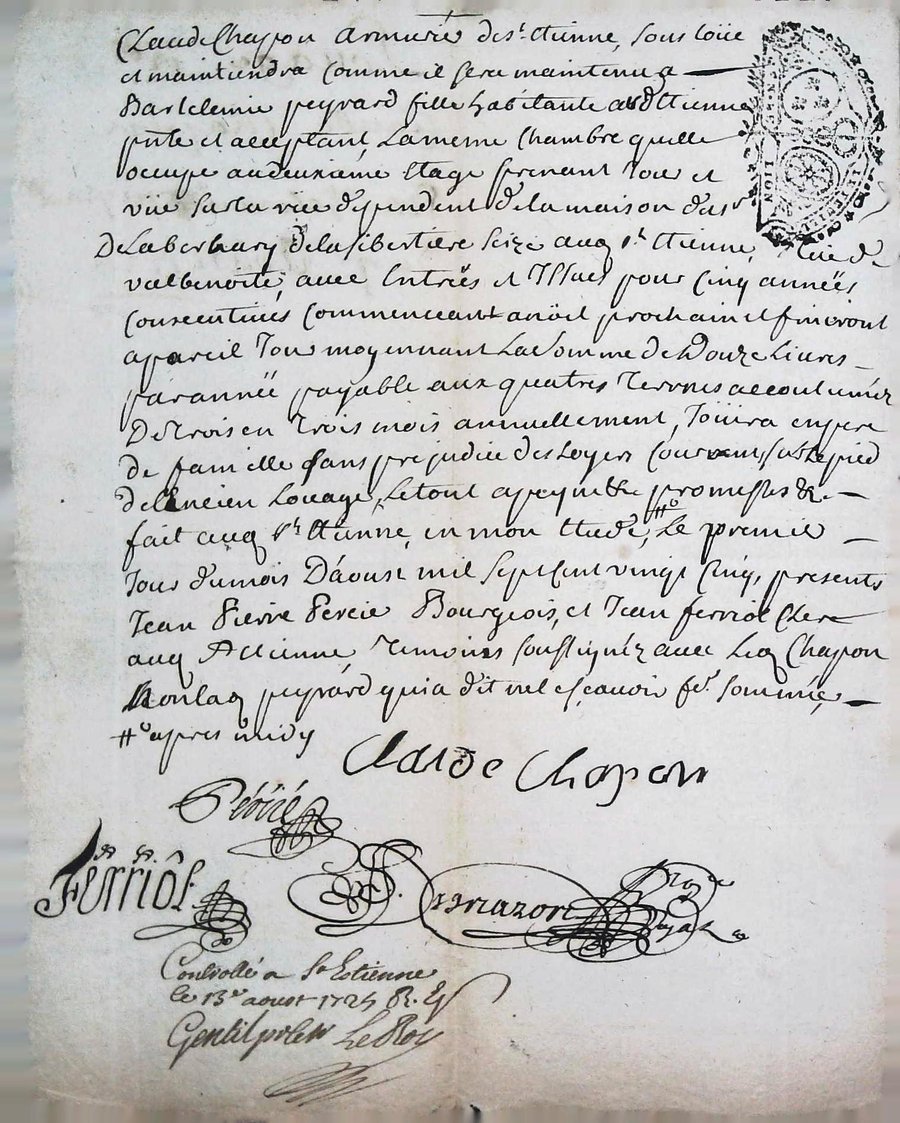 Claude Chapon Armurié de st. Etienne, sous loüe
et maintiendra comme il sera maintenu a
Bartelemie peyrard fille habitante aud st Etienne
pnte et acceptant, La meme Chambre quelle
occupe au deuxiéme Etage prenant Jour et
vüe sur la rüe dependent de la maison du sr
De la berhary de la fibertiere Scize aud st. Etienne, rüe de
valbenoite, avec Entrées et Issues pour Cinq années
Consecutives Commenceant a noël prochain et finiront
a pareil Jour moyennant La Somme de Douze Livres
par année payable aux quatres Termes accoutumés
De trois en trois mois annuellement, Joüira en pere
de famille sans prejudice des Loyers Courrents, sur le pied
de l'ancien Louage, Le tout a peyne &c promesses &c.
fait aud st. Etienne, en mon Etude, #° Le premier
Jour du mois D'aoust mil sept Cent vingt Cinq, presents
Jean Pierre Bourgeois, et Jean ferriol Clerc
aud st Etienne, Temoins soussignéz avec Led Chapon
Non lad peyrard qui a dit ne sçavoir fe. sommée,
#° apres midy
Claude Chapon
ferriol
Controllé a St Estienne
le 13e aoust 1725 R.
Gentil Le Roy
LION